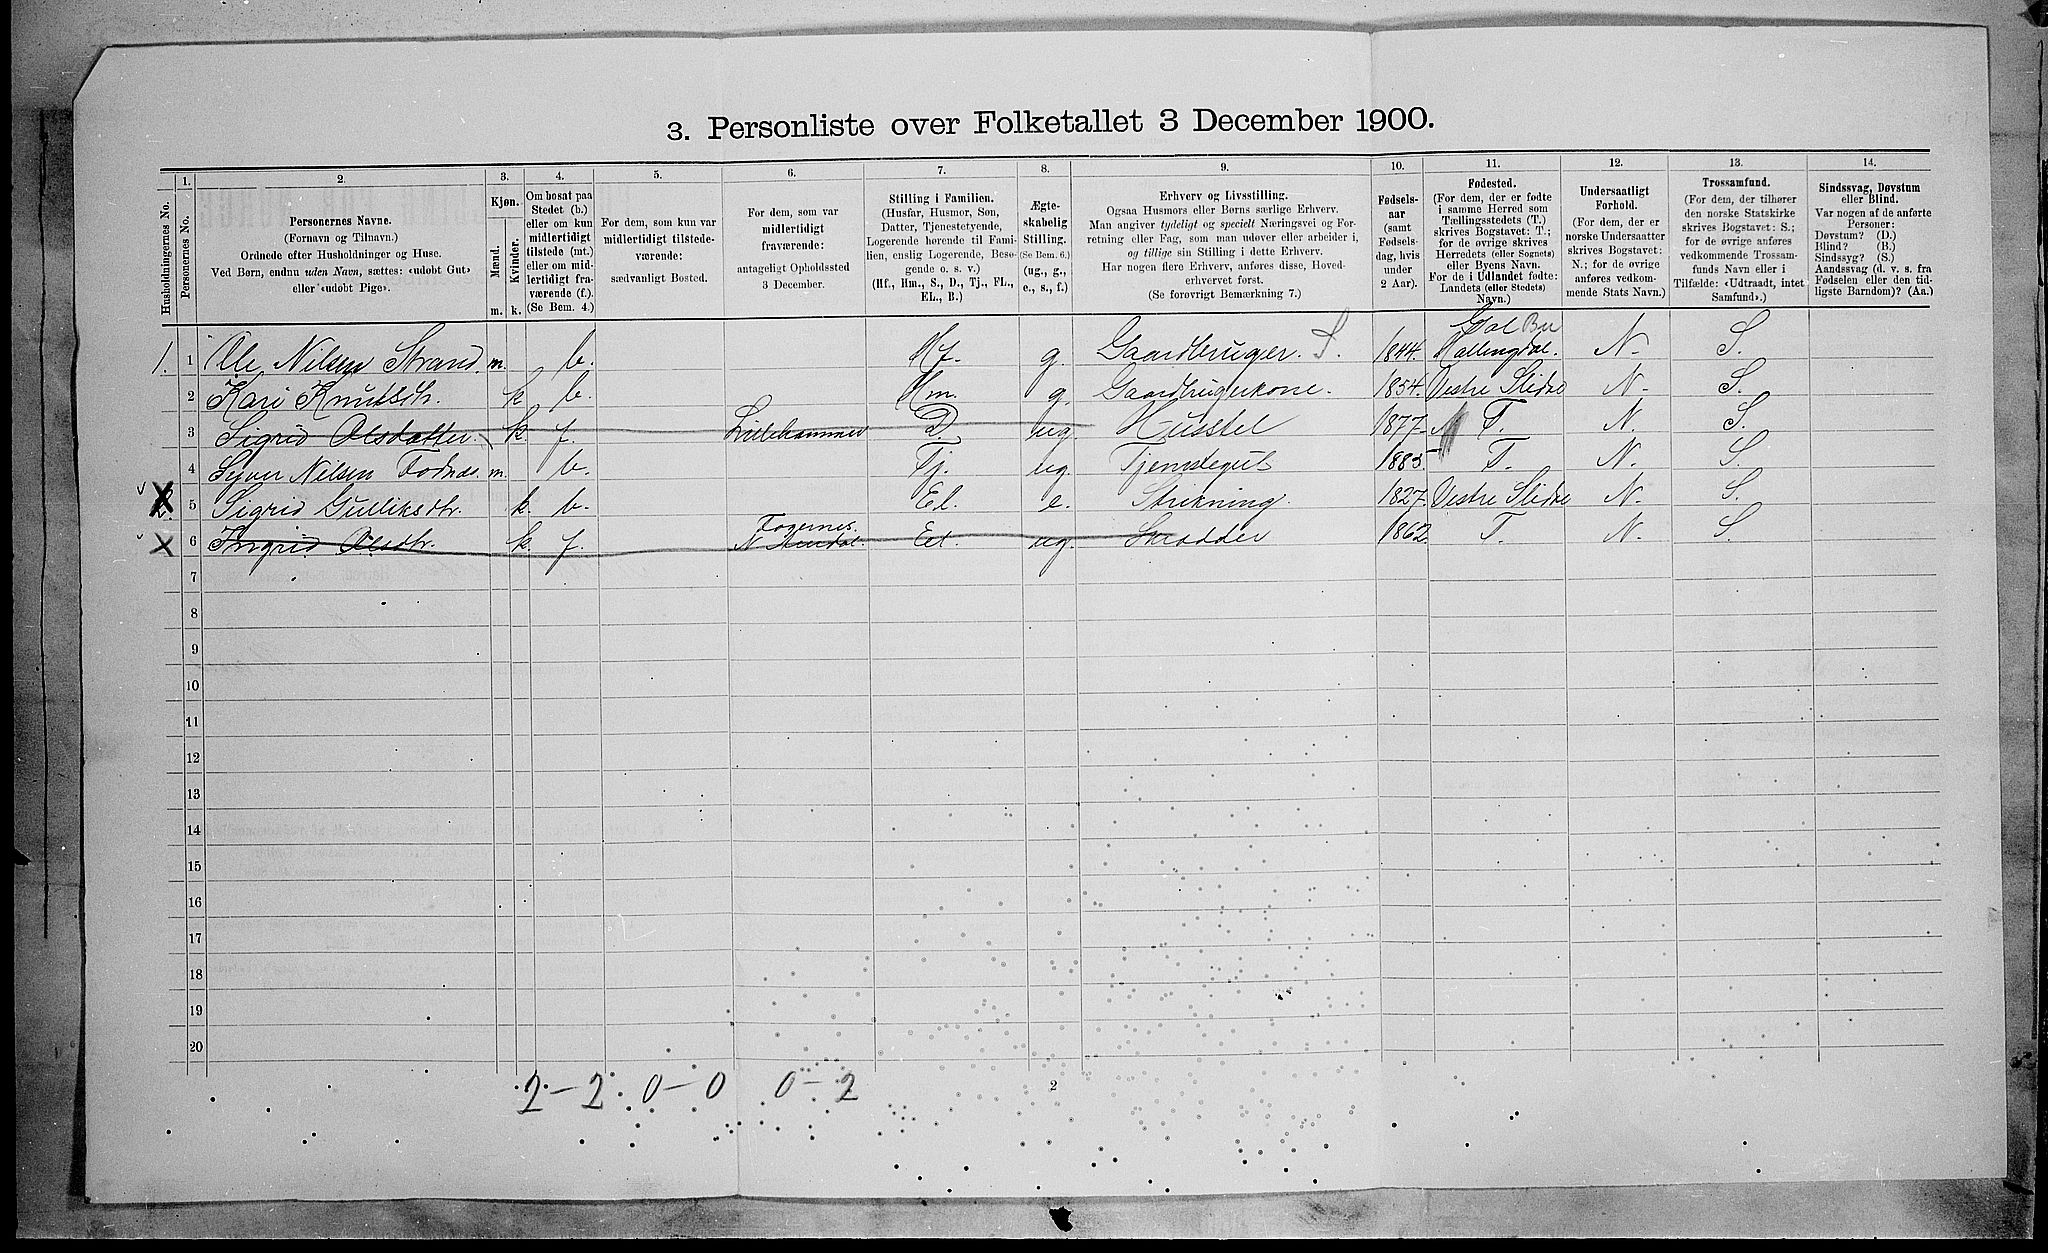 3. Personliste over Folketallet 3 December 1900.
Husholdningernes No.
1.
Personernes No.
2.
Personernes Navne.
(Fornavn og Tilnavn.)
Ordnede efter Husholdninger og Huse.
Ved Børn, endnu uden Navn, sættes: «udøbt Gut»
eller «udøbt Pige».
3.
Kjøn.
Mænd.
Kvinder.
m. k.
4.
Om bosat paa
Stedet (b.)
eller om kun
midlertidigt
tilstede (mt.)
eller om mid-
lertidigt fra-
værende (f.).
(Se Bem. 4.)
5.
For dem, som kun var
midlertidigt tilstede-
værende:
sædvanligt Bosted.
6.
For dem, som var
midlertidigt
fraværende:
antageligt Opholdssted
3 December.
7.
Stilling i Familien.
(Husfar, Husmor, Søn,
Datter, Tjenestetyende,
Logerende hørende til Fami-
lien, enslig Logerende, Besø-
gende o. s. v.)
(Hf., Hm., S., D., Tj., FL.,
EL., B.)
8.
Ægte-
skabelig
Stilling.
(Se Bem. 6.)
(ug., g.,
e., s., f.)
9.
Erhverv og Livsstilling.
Ogsaa Husmors eller Børns særlige Erhverv.
Man angiver tydeligt og specielt Næringsvei og For-
retning eller Fag, som man udøver eller arbeider i,
og tillige sin Stilling i dette Erhverv.
Har nogen flere Erhverv, anføres disse, Hoved-
erhvervet først.
(Se forøvrigt Bemærkning 7.)
10.
Fødsels-
aar
(samt
Fødsels-
dag, hvis
under
2 Aar).
11.
Fødested.
(For dem, der er fødte
i samme Herred som
Tællingsstedets (T.)
skrives Bogstavet: T.;
for de øvrige skrives
Herredets (eller Sognets)
eller Byens Navn.
For de i Udlandet fødte:
Landets (eller Stedets)
Navn.)
12.
Undersaatligt
Forhold.
(For dem, der er
norske Undersaatter
skrives Bogstavet:
N.; for de øvrige
anføres vedkom-
mende Stats Navn.)
13.
Trossamfund.
(For dem, der tilhører
den norske Statskirke
skrives Bogstavet: S.;
for de øvrige anføres
vedkommende Trossam-
funds Navn eller i
Tilfælde: «Udtraadt, intet
Samfund».)
14.
Sindssvag, Døvstum
eller Blind.
Var nogen af de anførte
Personer:
Døvstum? (D.)
Blind? (B.)
Sindssyg? (S.)
Aandssvag (d. v. s. fra
Fødselen eller den tid-
ligste Barndom)? (Aa.)
Gol
1. 1 Ole Nilsen Strand. m. b. Hf. g. Gaardbruger. S. 1844. Hallingdal. N. S.
2 Kari Knutsdtr. k b. Hm. g. Gaardbrugerkone. 1854. Vestre Slidre N. S.
3 Sigrid Olsdatter. k. f. Lillehammer D. ug Husstel 1877. T. N. S.
4 Syver Nilsen Fodnæs. m. b. Tj. ug. Tjenstegut 1885 T. N. S.
2. 5 Sigrid Gulliksdtr. k. b. El. e. Strikning. 1827. Vestre Slidre N. S.
Fagernes.
6 Ingrid Olsdtr. k. f. N. Aurdal. El. ug. Skrædder 1862. T. N. S.
7
8
9
10
11
12
13
14
15
16
17
18
19
20
2 – 2 0 – 0 0 – 2
2